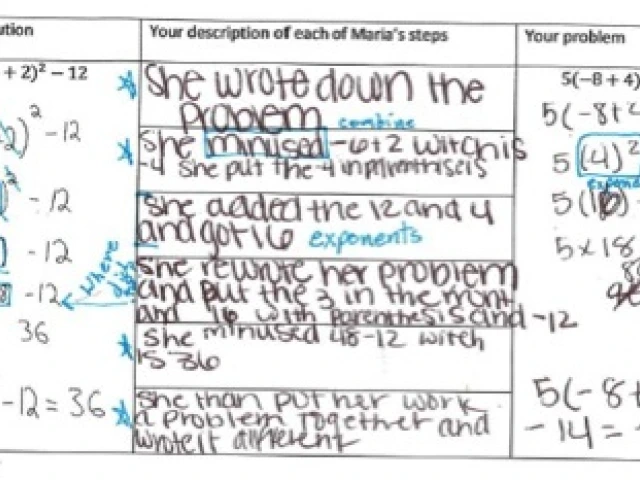 ution
+ 2)² − 12
2)² -12
² - 12
- 12
-12
36
-12 = 36
Your description of each of Maria's steps
She wrote down the
problem
combine
She minused -6+2 witch is
-4 She put the -4 in parenthiseis
She added the 12 and 4
and got 16 exponents
where
did
She rewrote her problem
and put the 3 in the front
and 16 with parenthesis and -12
She minused 48-12 witch
is 36
She than put her work
a problem together and
wrote it different
Your problem
5(−8 + 4)
5(-8+
5 (4)²
5(16)-
5x18
5(-8+
-14 =